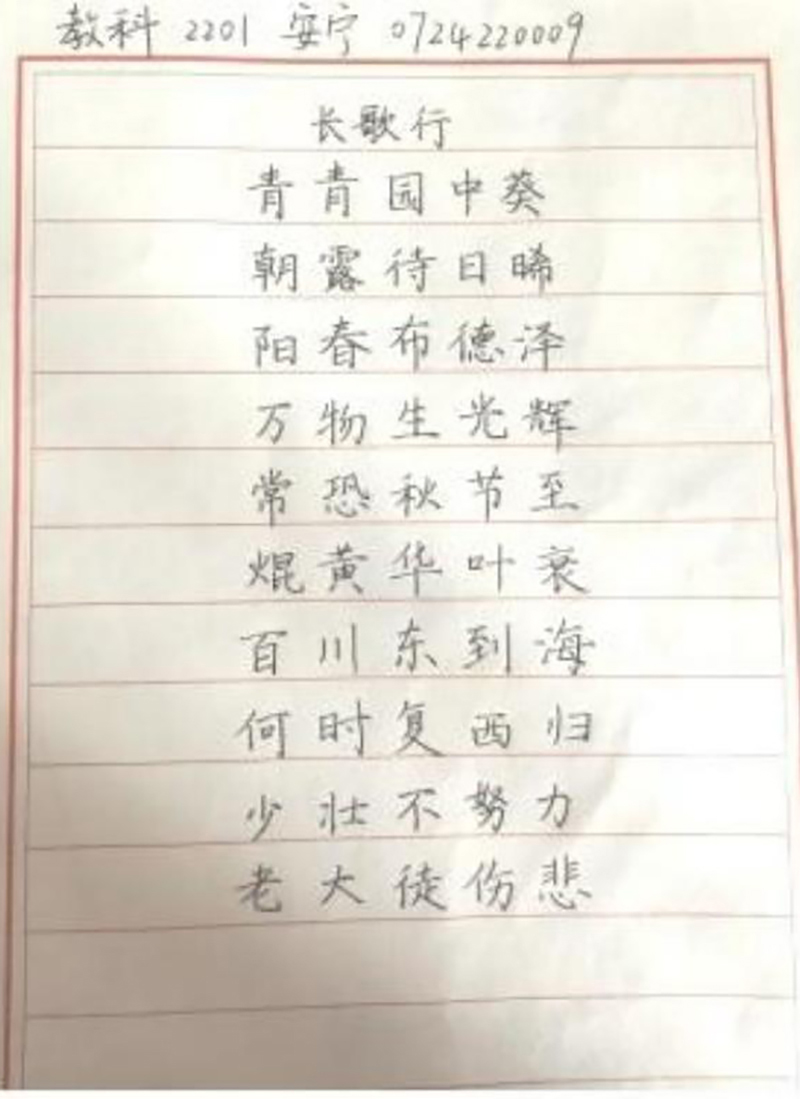 教科 2201 安宁 0724220009
长歌行
青青园中葵
朝露待日晞
阳春布德泽
万物生光辉
常恐秋节至
焜黄华叶衰
百川东到海
何时复西归
少壮不努力
老大徒伤悲